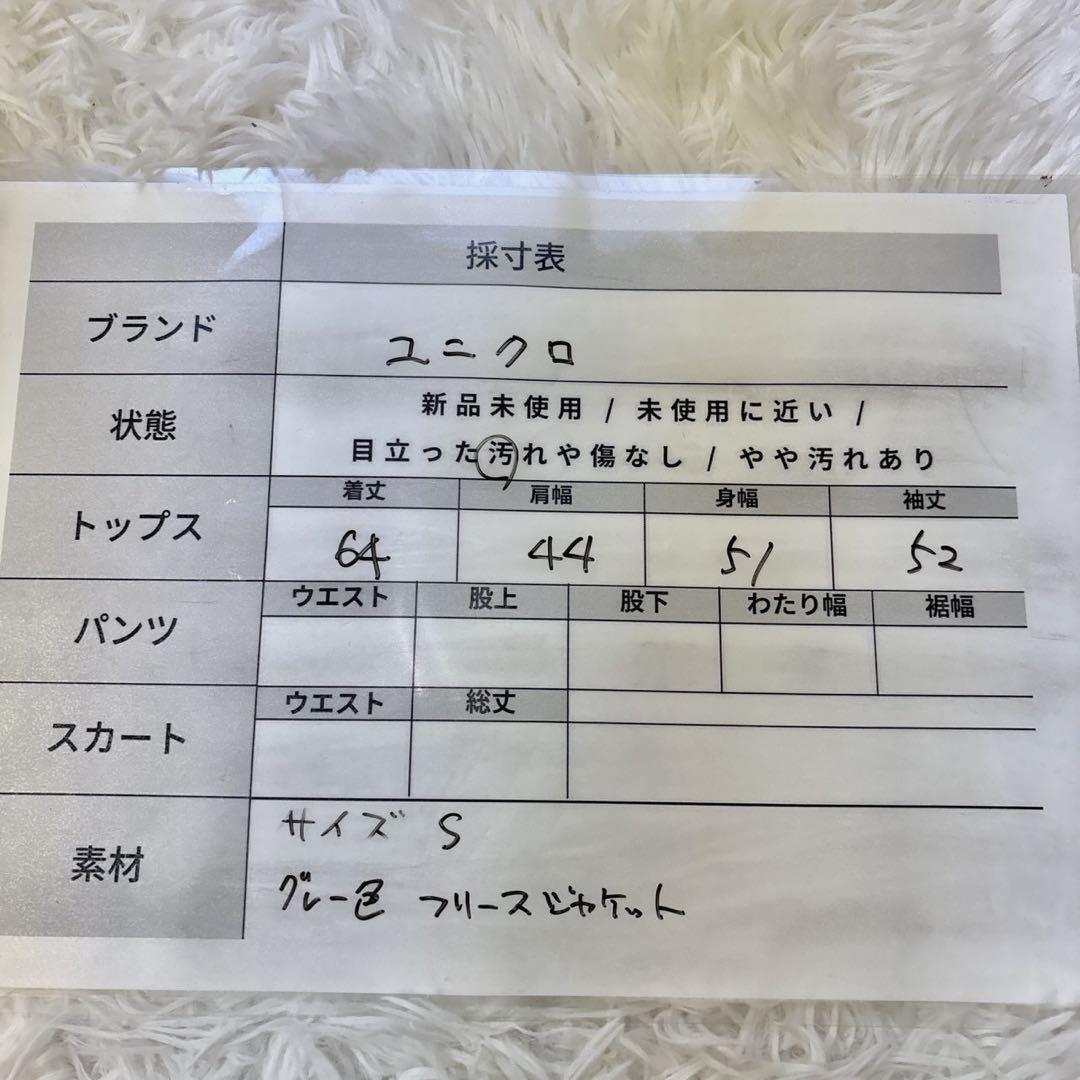 採寸表
ブランド
ユニクロ
状態
新品未使用 / 未使用に近い /
目立った汚れや傷なし / やや汚れあり
トップス
着丈 肩幅 身幅 袖丈
64 44 51 52
パンツ
ウエスト 股上 股下 わたり幅 裾幅
スカート
ウエスト 総丈
素材
サイズ S
グレー色 フリースジャケット